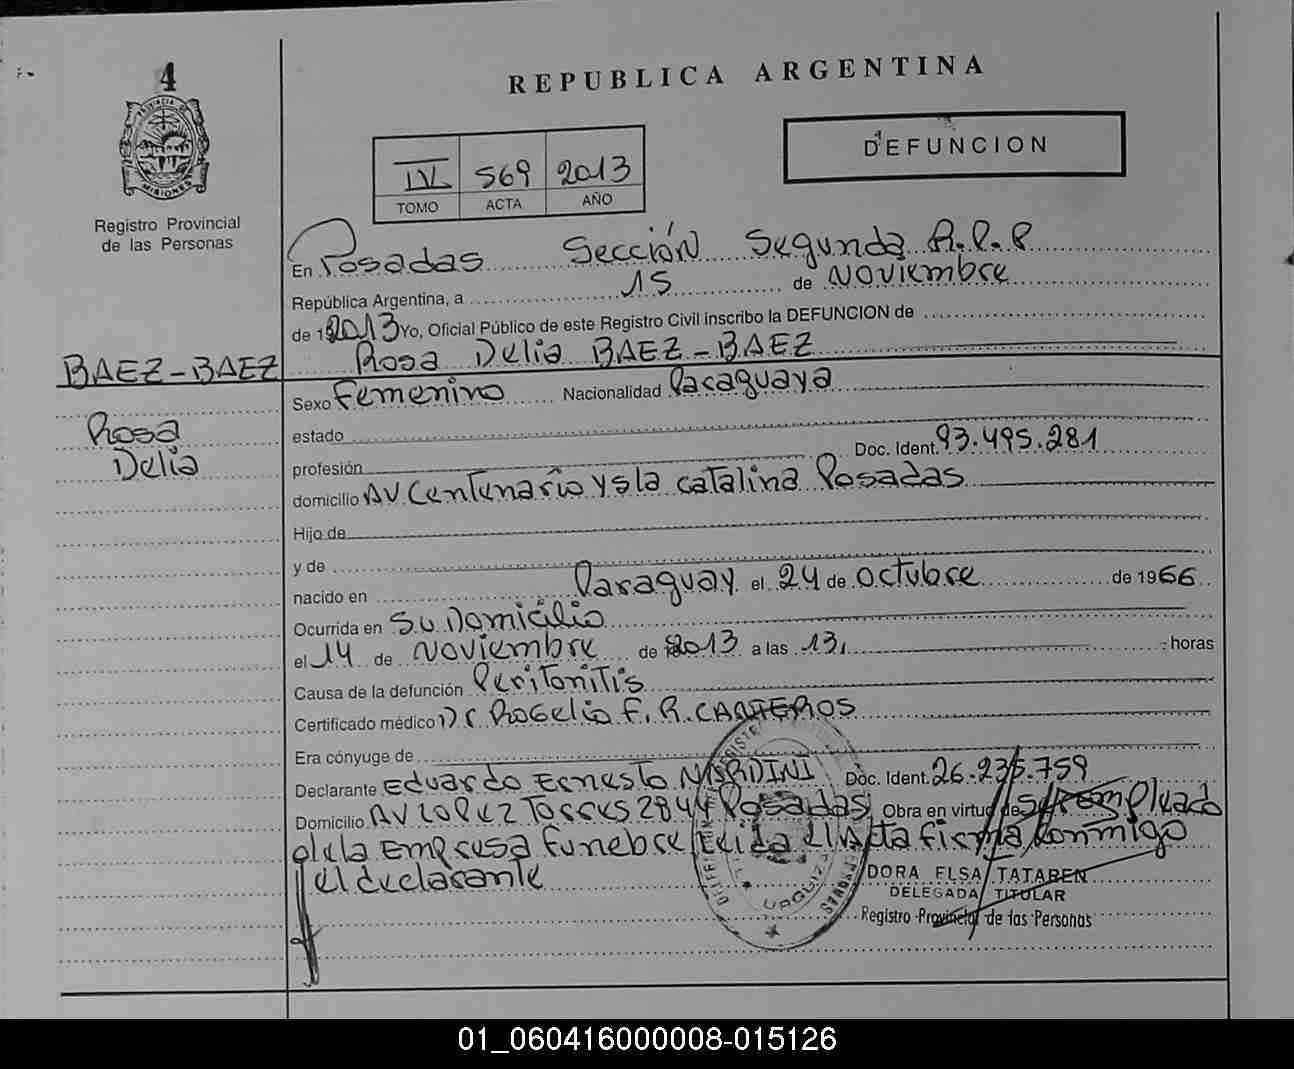 4
PROVINCIA DE
MISIONES
Registro Provincial
de las Personas
REPUBLICA ARGENTINA
DEFUNCION
IV 569 2013
TOMO ACTA AÑO
En Posadas Sección Segunda R.P.P
República Argentina, a 15 de Noviembre
de 2013 Yo, Oficial Público de este Registro Civil inscribo la DEFUNCION de
Rosa Delia BAEZ-BAEZ
BAEZ-BAEZ
Rosa
Delia
Sexo Femenino Nacionalidad Paraguaya
estado
profesión Doc. Ident. 93.495.281
domicilio AV Centenario y sla catalina Posadas
Hijo de
y de
nacido en Paraguay el 24 de octubre de 1966
Ocurrida en Su Domicilio
el 14 de Noviembre de 2013 a las 13, horas
Causa de la defunción Peritonitis
Certificado médico Dr ROGELIO F. R. CANTEROS
Era cónyuge de
Declarante Eduardo Ernesto NARDINI Doc. Ident. 26.235.759
Domicilio AV LOPEZ TORRES 2844 Posadas Obra en virtud de ser empleado
de la Empresa Funebre Leida el Acta firma conmigo
el declarante
URQUIZA
DORA ELSA TATAREN
DELEGADA TITULAR
Registro Provincial de las Personas
01_060416000008-015126